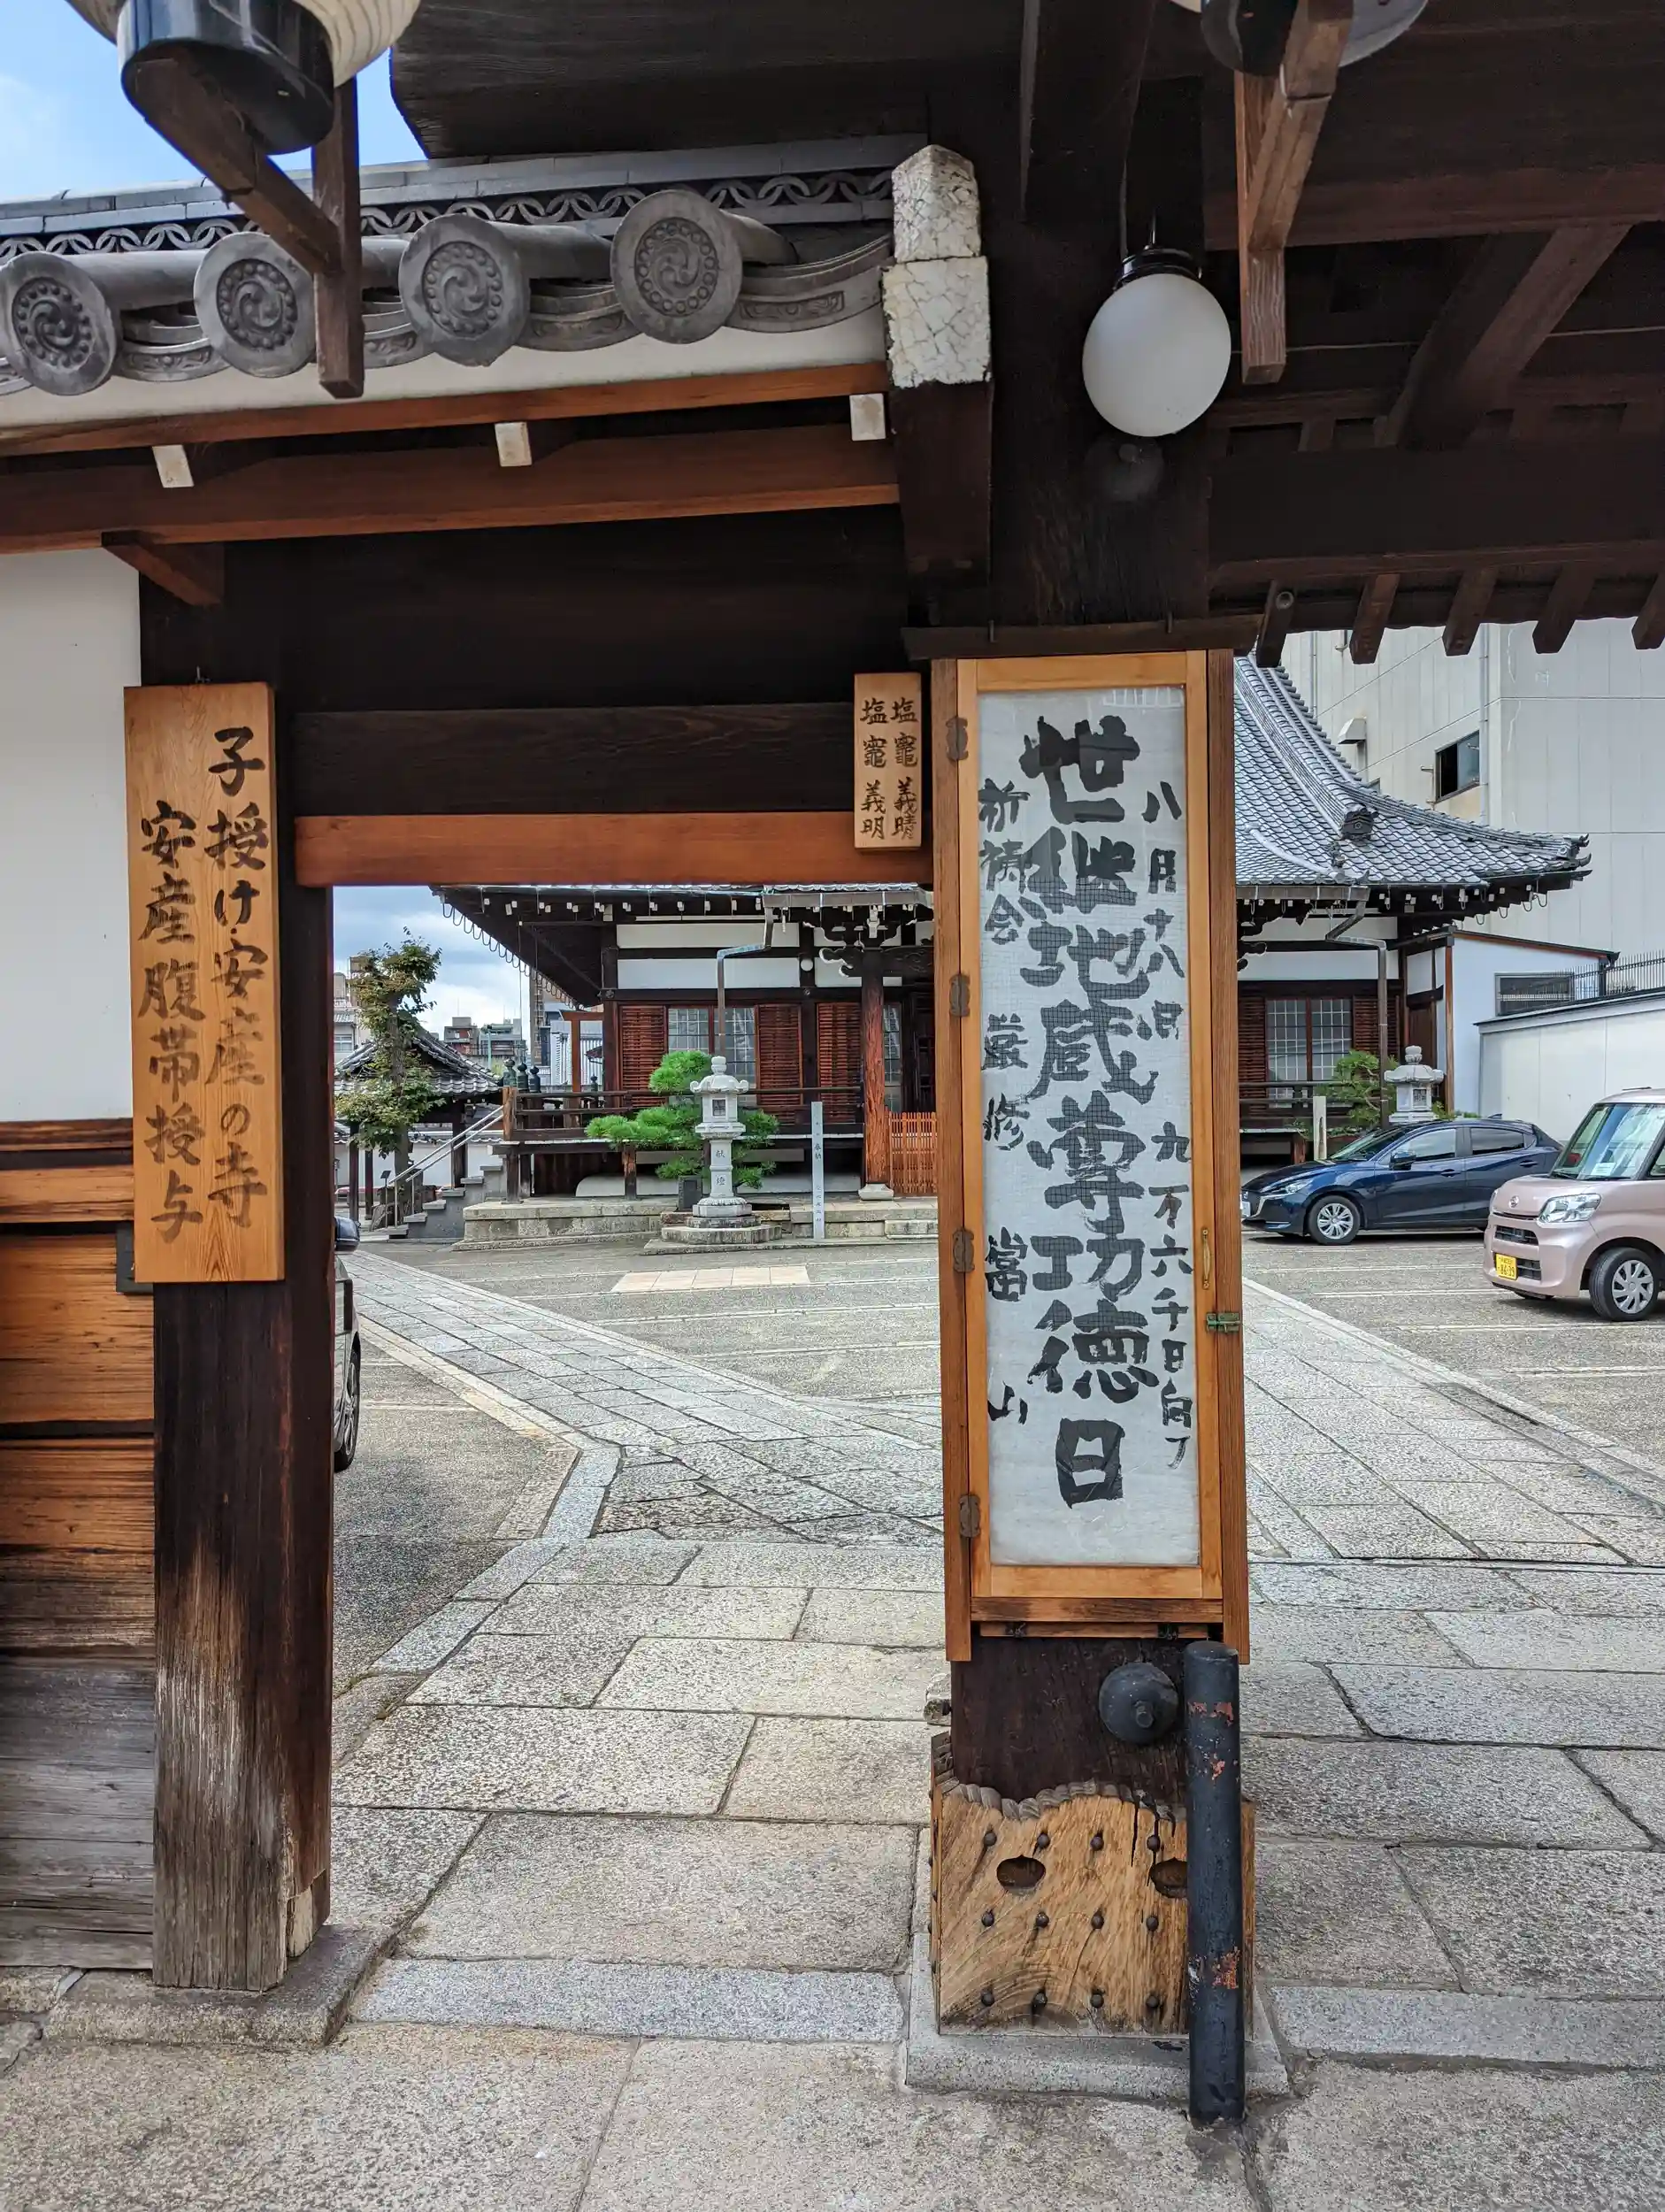 八月十八日 九万六千日向フ
世継地蔵尊功徳日
祈祷会 厳修 當山
塩竈 義晴
塩竈 義明
子授け・安産の寺
安産腹帯授与
献燈
奉納